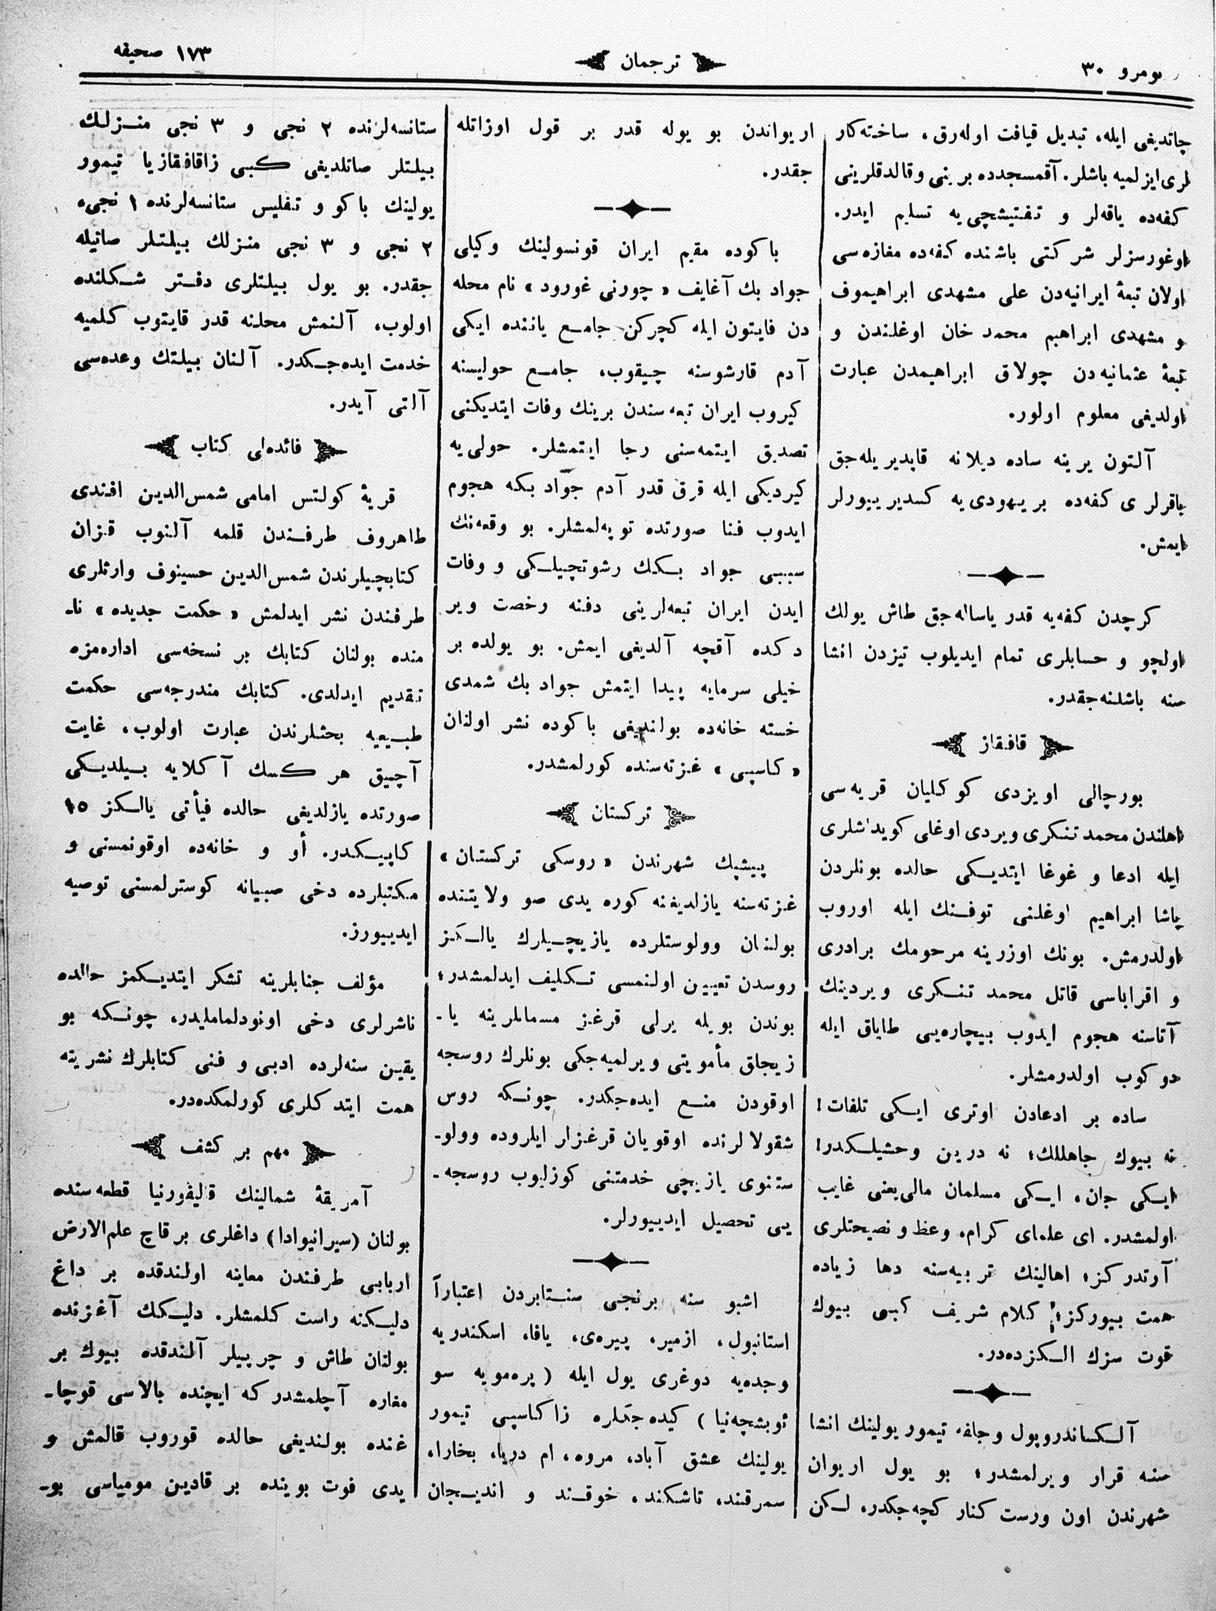 نومرو ٣٠
ترجمان
١٧٣ صحیفه
چاتدیغی ایله، تبدیل قیافت اوله‌رق، ساخته‌كار
لری ایزلمیه باشلر. آقمسجدده برینی و قالدقلرینی
كفه‌ده یاقه‌لر و تفتیشچی‌یه تسلیم ایدر.
اوغورسزلر شركتی باشنده كفه‌ده مغازه‌سی
اولان تبعهٔ ایرانیه‌دن علی مشهدی ابراهیموف
و مشهدی ابراهیم محمد خان اوغلندن و
تبعهٔ عثمانیه‌دن چولاق ابراهیمدن عبارت
اولدیغی معلوم اولور.
آلتون یرینه ساده دیلانه قاپدیریله‌جق
باقرلری كفه‌ده بر یهودی‌یه كسدیرییورلر
ایمش.
كرچدن كفه‌یه قدر یاساله‌جق طاش یولك
اولچو و حسابلری تمام ایدیلوب تیزدن انشا
سنه باشلنه‌جقدر.
قافقاز
بورچالی اویزدی كوكلیان قریه‌سی
اهلندن محمد تنكری ویردی اوغلی كویداشلری
ایله ادعا و غوغا ایتدیكی حالده بونلردن
پاشا ابراهیم اوغلنی توفنك ایله اوروب
اولدرمش. بونك اوزرینه مرحومك برادری
و اقراباسی قاتل محمد تنكری ویردینك
آتاسنه هجوم ایدوب بیچاره‌یی طایاق ایله
دوكوب اولدرمشلر.
ساده بر ادعادن اوتری ایكی تلفات!
نه بیوك جاهللك؛ نه درین وحشیلكدر!
ایكی جان، ایكی مسلمان مالی‌یعنی غایب
اولمشدر. ای علمای كرام، وعظ و نصیحتلری
آرتدركز؛ اهالینك تربیه‌سنه دها زیاده
همت بیوركز؛ كلام شریف كبی بیوك
قوت سزك الكزده‌در.
آلكساندروپول و جلفه تیمور یولینك انشا
سنه قرار ویرلمشدر؛ بو یول اریوان
شهرندن اون ورست كنار كچه‌جكدر، لكن
اریواندن بو یوله قدر بر قول اوزاتله
جقدر.
باكوده مقیم ایران قونسولینك وكیلی
جواد بك آغایف «چورنی غورود» نام محله
دن فایتون ایله كچركن جامع یاننده ایكی
آدم قارشوسنه چیقوب، جامع حولیسنه
كیروب ایران تبعه‌سندن برینك وفات ایتدیكنی
تصدیق ایتمه‌سنی رجا ایتمشلر. حولی‌یه
كیردیكی ایله قرق قدر آدم جواد بكه هجوم
ایدوب فنا صورتده توپه‌لمشلر. بو وقعه‌نك
سببی جواد بكك رشوتچیلكی و وفات
ایدن ایران تبعه‌لرینی دفنه رخصت ویر
دكده آقچه آلدیغی ایمش. بو یولده بر
خیلی سرمایه پیدا ایتمش جواد بك شمدی
خسته خانه‌ده بولندیغی باكوده نشر اولنان
«كاسپی» غزته‌سنده كورلمشدر.
تركستان
پیشپك شهرندن «روسكی تركستان»
غزته‌سنه یازلدیغنه كوره یدی صو ولایتنده
بولنان وولوستلرده یازیچیلرك یالكز
روسدن تعیین اولنمسی تكلیف ایدلمشدر؛
بوندن بویله یرلی قرغز مسلمانلرینه یا-
زیجلق مأمویتی ویرلمیه‌جكی بونلرك روسجه
اوقودن منع ایده‌جكدر. چونكه روس
شقولالرنده اوقویان قرغزلر ایلروده وولو-
ستنوی یازیچی خدمتنی كوزلیوب روسجه-
یی تحصیل ایدییورلر.
اشبو سنه برنجی سنتابردن اعتبارآ
استانبول، ازمیر، پیره‌ی، یافا، اسكندریه
وجده‌یه دوغری یول ایله (پره‌مویه سو
ئوبشچه‌نیا) كیده‌جكلره زاكاسپی تیمور
یولینك عشق آباد، مروه، ام دریا، بخارا،
سمرقند، تاشكند، خوقند و اندیجان
ستانسه‌لرنده ٢ نجی و ٣ نجی منزلك
بیلتلر صاتلدیغی كبی زاقافقازیا تیمور
یولینك باكو و تفلیس ستانسه‌لرنده ١ نجی،
٢ نجی و ٣ نجی منزلك بیلتلر صاتیله
جقدر. بو یول بیلتلری دفتر شكلنده
اولوب، آلنمش محلنه قدر قایتوب كلمیه
خدمت ایده‌جكدر. آلنان بیلتك وعده‌سی
آلتی آیدر.
فائده‌لی كتاب
قریهٔ كولتس امامی شمس‌الدین افندی
طاهروف طرفندن قلمه آلنوب قزان
كتابچیلرندن شمس‌الدین حسینوف وارثلری
طرفندن نشر ایدلمش «حكمت جدیده» نا-
منده بولنان كتابك بر نسخه‌سی اداره‌مزه
تقدیم ایدلدی. كتابك مندرجه‌سی حكمت
طبیعیه بحثلرندن عبارت اولوب، غایت
آچیق هر كسك آكلایه بیلدیكی
صورتده یازلدیغی حالده فیأتی یالكز ١٥
كاپیكدر. أو و خانه‌ده اوقونمسنی و
مكتبلرده دخی صبیانه كوسترلمسنی توصیه
ایدییورز.
مؤلف جنابلرینه تشكر ایتدیكمز حالده
ناشرلری دخی اونودلماملیدر، چونكه بو
یقین سنه‌لرده ادبی و فنی كتابلرك نشرینه
همت ایتدكلری كورلمكده‌در.
مهم بر كشف
آمریقهٔ شمالینك قالیفورنیا قطعه‌سنده
بولنان (سیرانیوادا) داغلری بر قاچ علم‌الارض
اربابی طرفندن معاینه اولندقده بر داغ
دلیكنه راست كلمشلر. دلیكك آغزنده
بولنان طاش و چرپیلر آلندقده بیوك بر
مغاره آچلمشدر كه ایچنده بالاسی قوچا-
غنده بولندیغی حالده قوروب قالمش و
یدی فوت بوینده بر قادین مومیاسی بو-